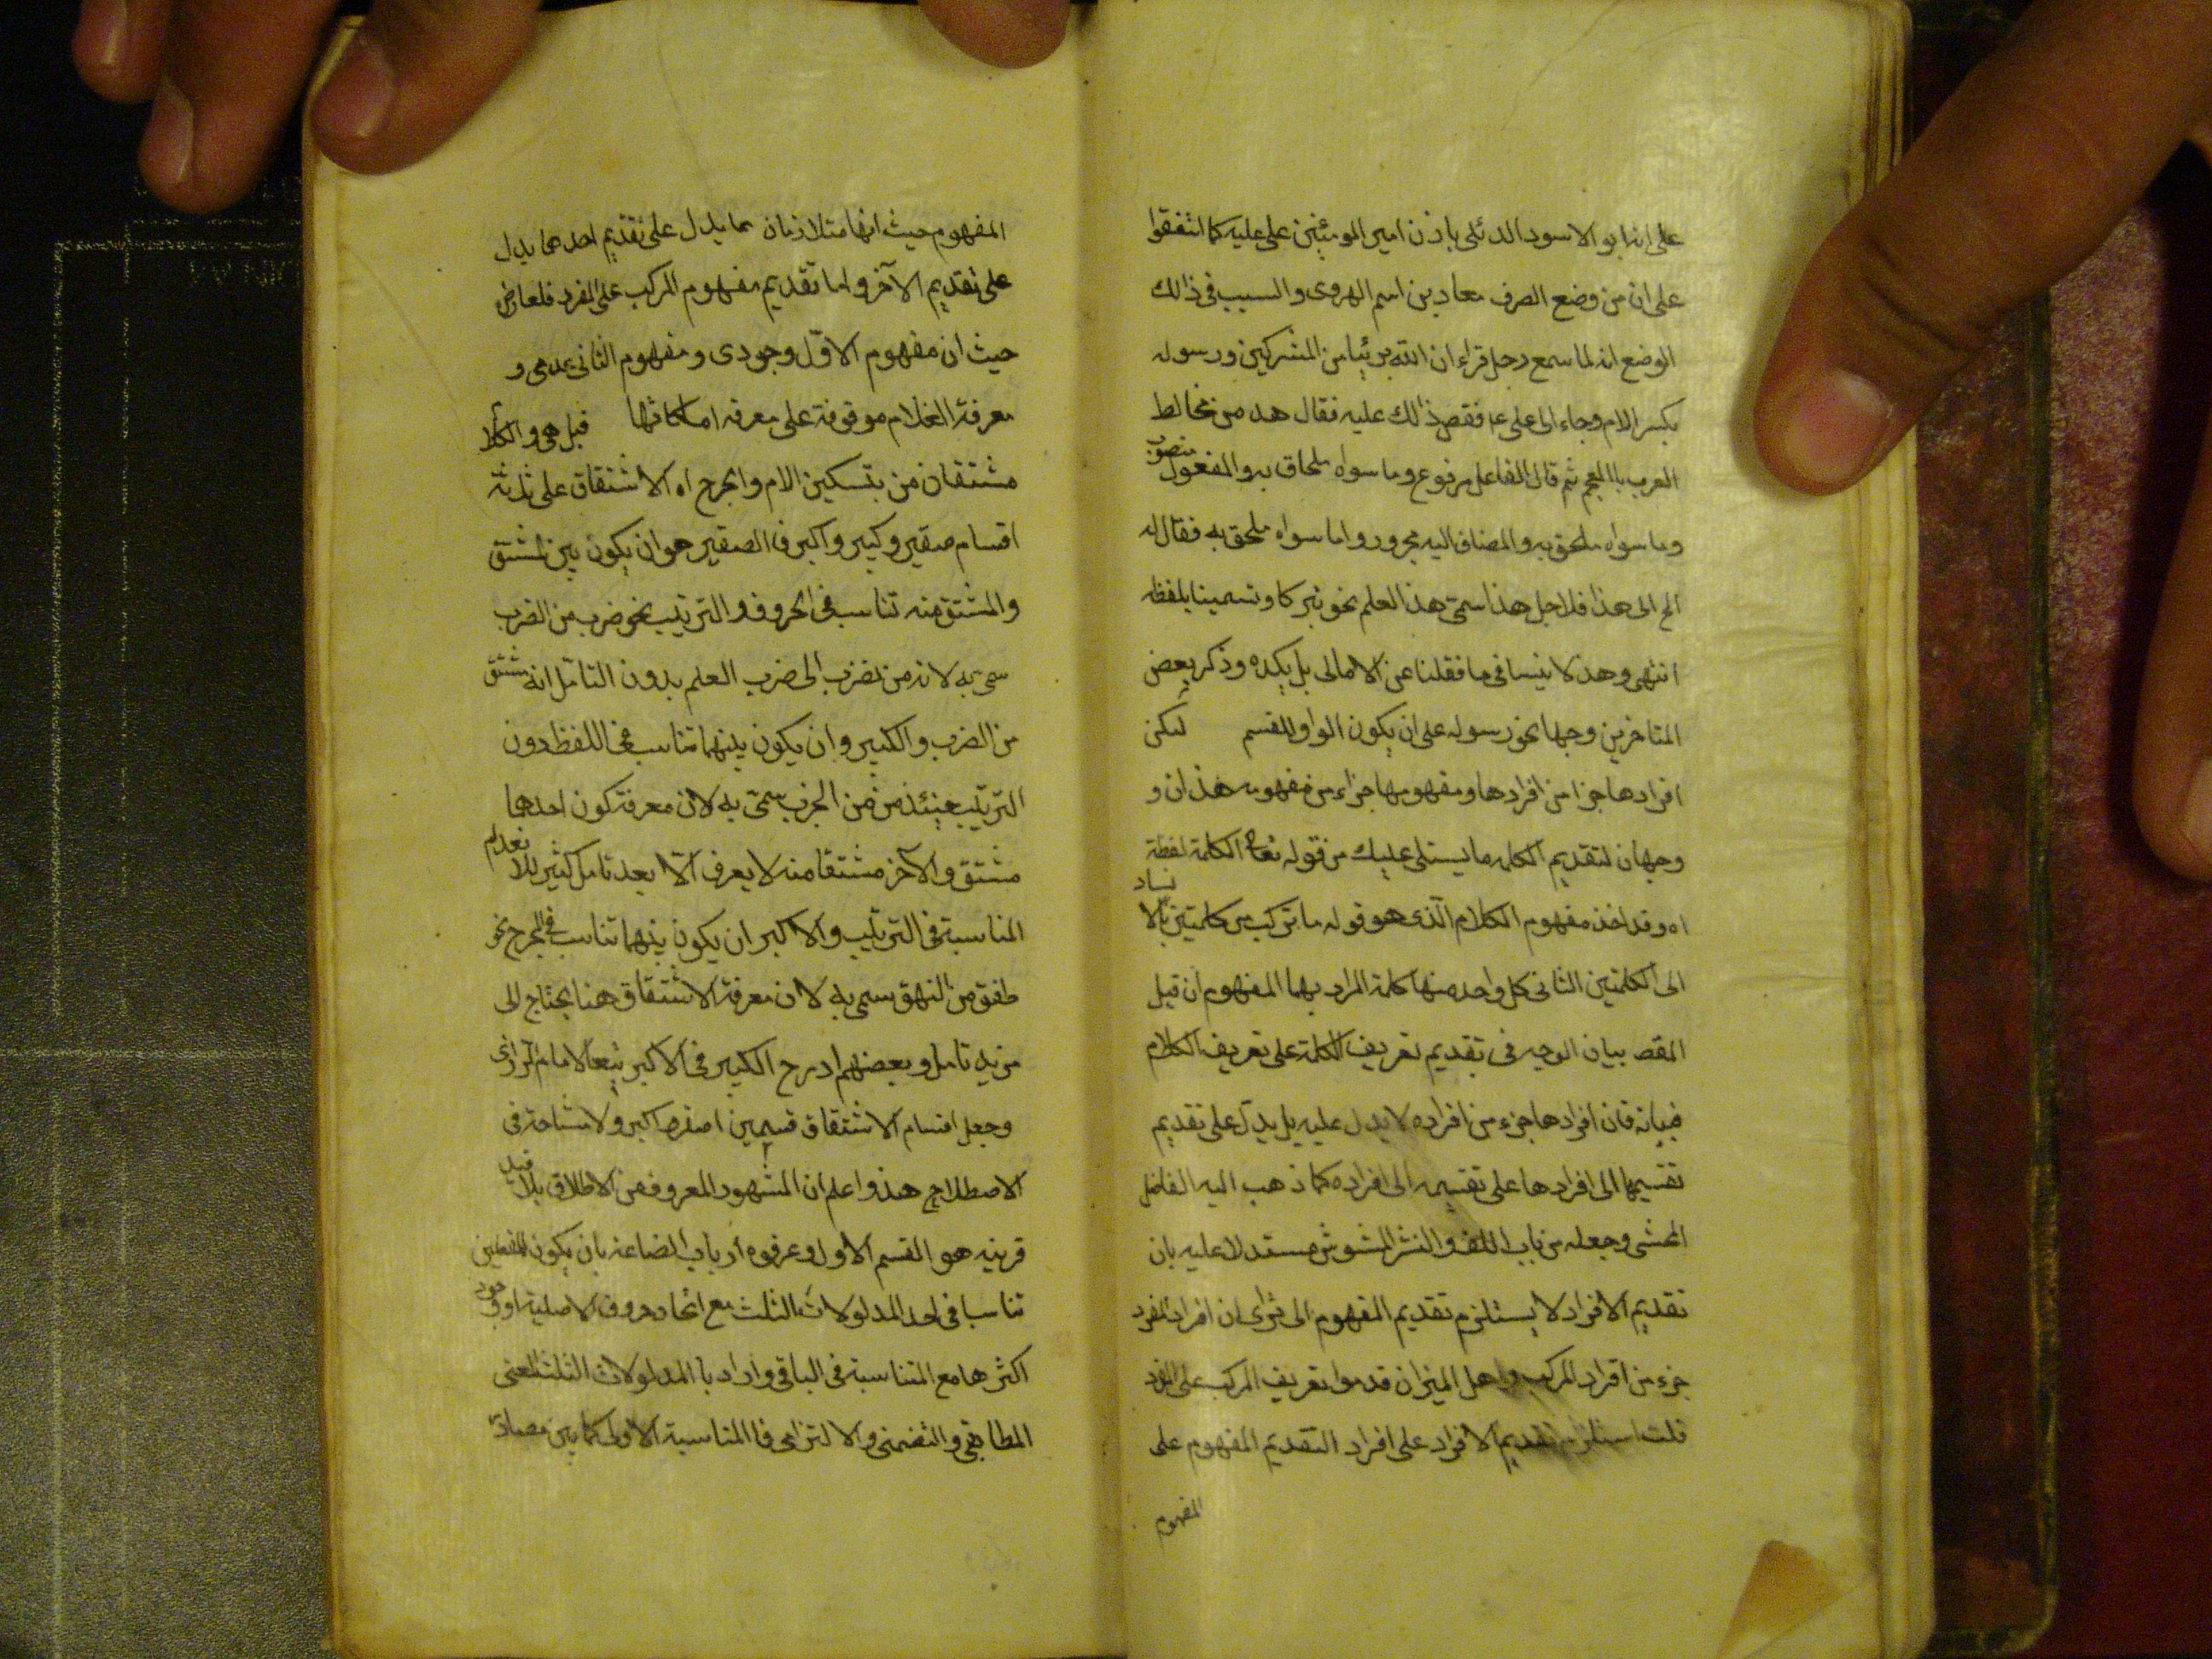 على انه ابو الاسود الدئلى باذن امير المومنين على عليه كما اتفقوا
على ان من وضع الصرف معاد بن اسم الهروى والسبب فى ذالك
الوضع انه لما سمع رجل قراء ان الله برئيا من المشركين ورسوله
بكسر الام وجاء الى على ع فقص ذالك عليه فقال هذ من مخالط
العرب باالعجم ثم قال الفاعل مرفوع وما سواه ملحاق به والمفعول منصوب
وما سواه ملحق به والمضاف اليه مجرور واما سواه ملحق به فقال له
الح الى هذا فلاجل هذا سمى هذ العلم نحو تبركا وتسمينا بلفظه
انتهى وهذ لا ينسافى ما فقلنا عن الامالى بل يكده وذكر بعض
المتاخرين وجها نحو رسوله على ان يكون الواو للقسم لكن
افرادها جزا من افرادها ومفهومها جزاء من مفهومه هذان و
وجهان لتقديم الكلمه ما يستلى عليك من قوله الكلمة لفظة
اه وقد اخذ مفهوم الكلام الذى هو قوله ما تركب من كلمتين بالاسناد
الى الكلمتين الثانى كل واحد منها كلمة المراد بهما المفهوم ان قيل
المقص بيان الوجه فى تقديم تعريف الكلمة على تعريف الكلام
فبيانه فان افرادها جزء من افراده لا يدل عليه بل يدل على تقديم
تقسيمها الى افرادها على تقسيمه الى افراده كما ذهب اليه الفاضل
المحشى وجعله من باب اللف والنشر المشوش مستدلا عليه بان
تقديم الافراد لا يستلزم تقديم المفهوم الى ترى ان افراد المفرد
جزء من افراد المركب واهل الميزان قدموا تعريف المركب على المفرد
قلت استلزم تقديم الافراد على افراد التقديم المفهوم على
المفهوم
المفهوم حيث انها متلازمان مما يدل على تقديم احدهما يدل
على تقديم الآخر واما تقديم مفهوم المركب على المفرد فلعارض
حيث ان مفهوم الاول وجودى ومفهوم الثانى عدمى و
معرفة الغلام موقوفة على معرفه املكاتها قيل هى والكلام
مشتقان من بتسكين الام والجرح اه الاشتقاق على ثلثة
اقسام صقير وكبير واكبر فى الصقير هو ان يكون بين المشتق
والمشتق منه تناسب فى الحروف والترتيب نحو ضرب من الضرب
سمى به لانه من نضرب الى ضرب العلم بدون التامل انه مشتق
من الضرب والكبير وان يكون بينهما تناسب فى اللفظ دون
الترتيب من الجرب سمى به لان معرفة كون احدهما
مشتق والآخر مشتقا منه لا يعرف الا بعد تامل كثير لعدم
المناسبة فى الترتيب والاكبر ان يكون بينهما تناسب فى المخرج نحو
طفق من النهق سمى به لان معرفة الاشتقاق هنا يحتاج الى
مزيد تامل وبعضهم ادرج الكبير فى الاكبر تبعا لامام الرازى
وجعل اقسام الاشتقاق قسمين اصغر اكبر ولا مشاحة فى
الاصطلاح هذ واعلم ان المشهور المعروف من الاطلاق بلا قيد
قرينه هو القسم الاول وعرفوه ارباب الصناعة بان يكون للفظين
تناسبا فى احد المدلولات الثلث مع اتحاد حروف الاصلية او وجود
اكثرها مع المتناسبة فى الباقى واراد باالمدلولات الثلث المعنى
المطابقى والتضمنى والالتزامى فاالمناسبة الاولى كما بين مصادر